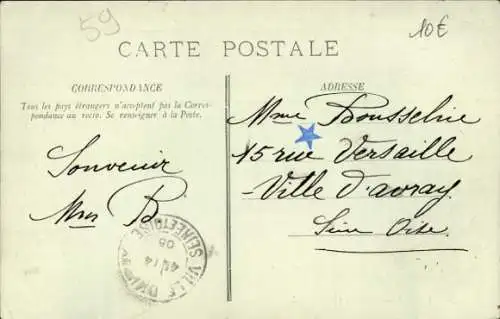 59
10€
CARTE POSTALE
CORRESPONDANCE
Tous les pays étrangers n'acceptent pas la Corres-
pondance au recto. Se renseigner à la Poste.
Souvenir
Mme B
ADRESSE
Mme Bousseline
15 rue Versaille
Ville d'avray
Seine Oise
VILLE D'AVRAY
SEINE ET OISE